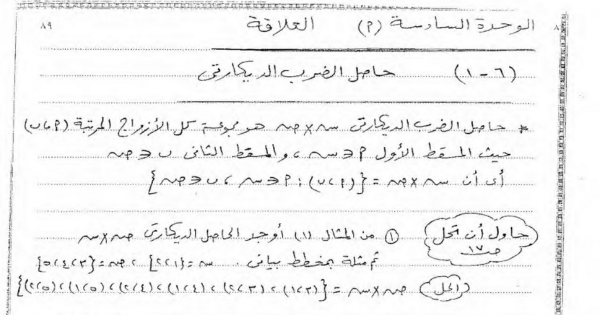 ٨٩
الوحدة السادسة (٩) العلاقة
(٦-١) حاصل الضرب الديكارتى
* حاصل الضرب الديكارتى س × ص هو مجموعة كل الأزواج المرتبة (٩،ب)
حيث المسقط الأول ٩∈س، والمسقط الثانى ب∈ص
أى أن س × ص = {(٩،ب) : ٩∈س، ب∈ص}
حاول أن تحل ص١٧
① من المثال (١) أوجد الحاصل الديكارتى ص × س
ثم مثله بمخطط بيانى. س = {١،٢}، ص = {٣،٤،٥}
(الحل) ص × س = {(٣،١)،(٣،٢)،(٤،١)،(٤،٢)،(٥،١)،(٥،٢)}